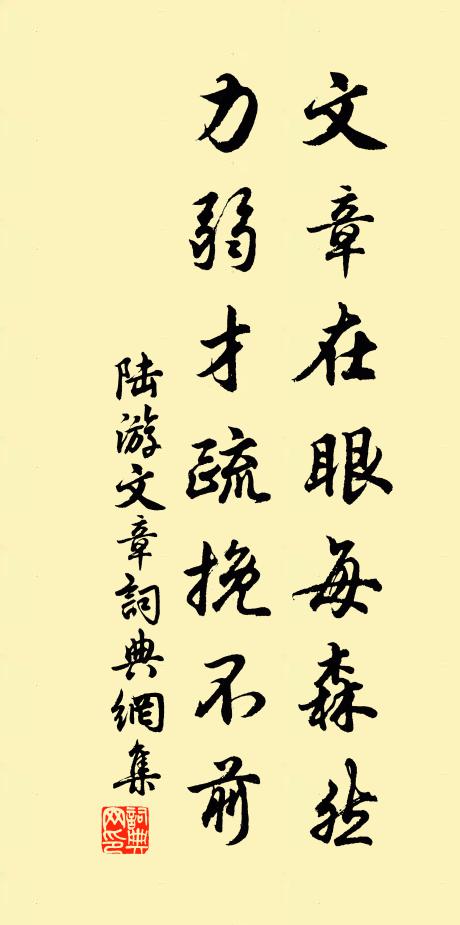 文章在眼每森然
力弱才疏挽不前
陆游文章詞典網集
詞典
网印